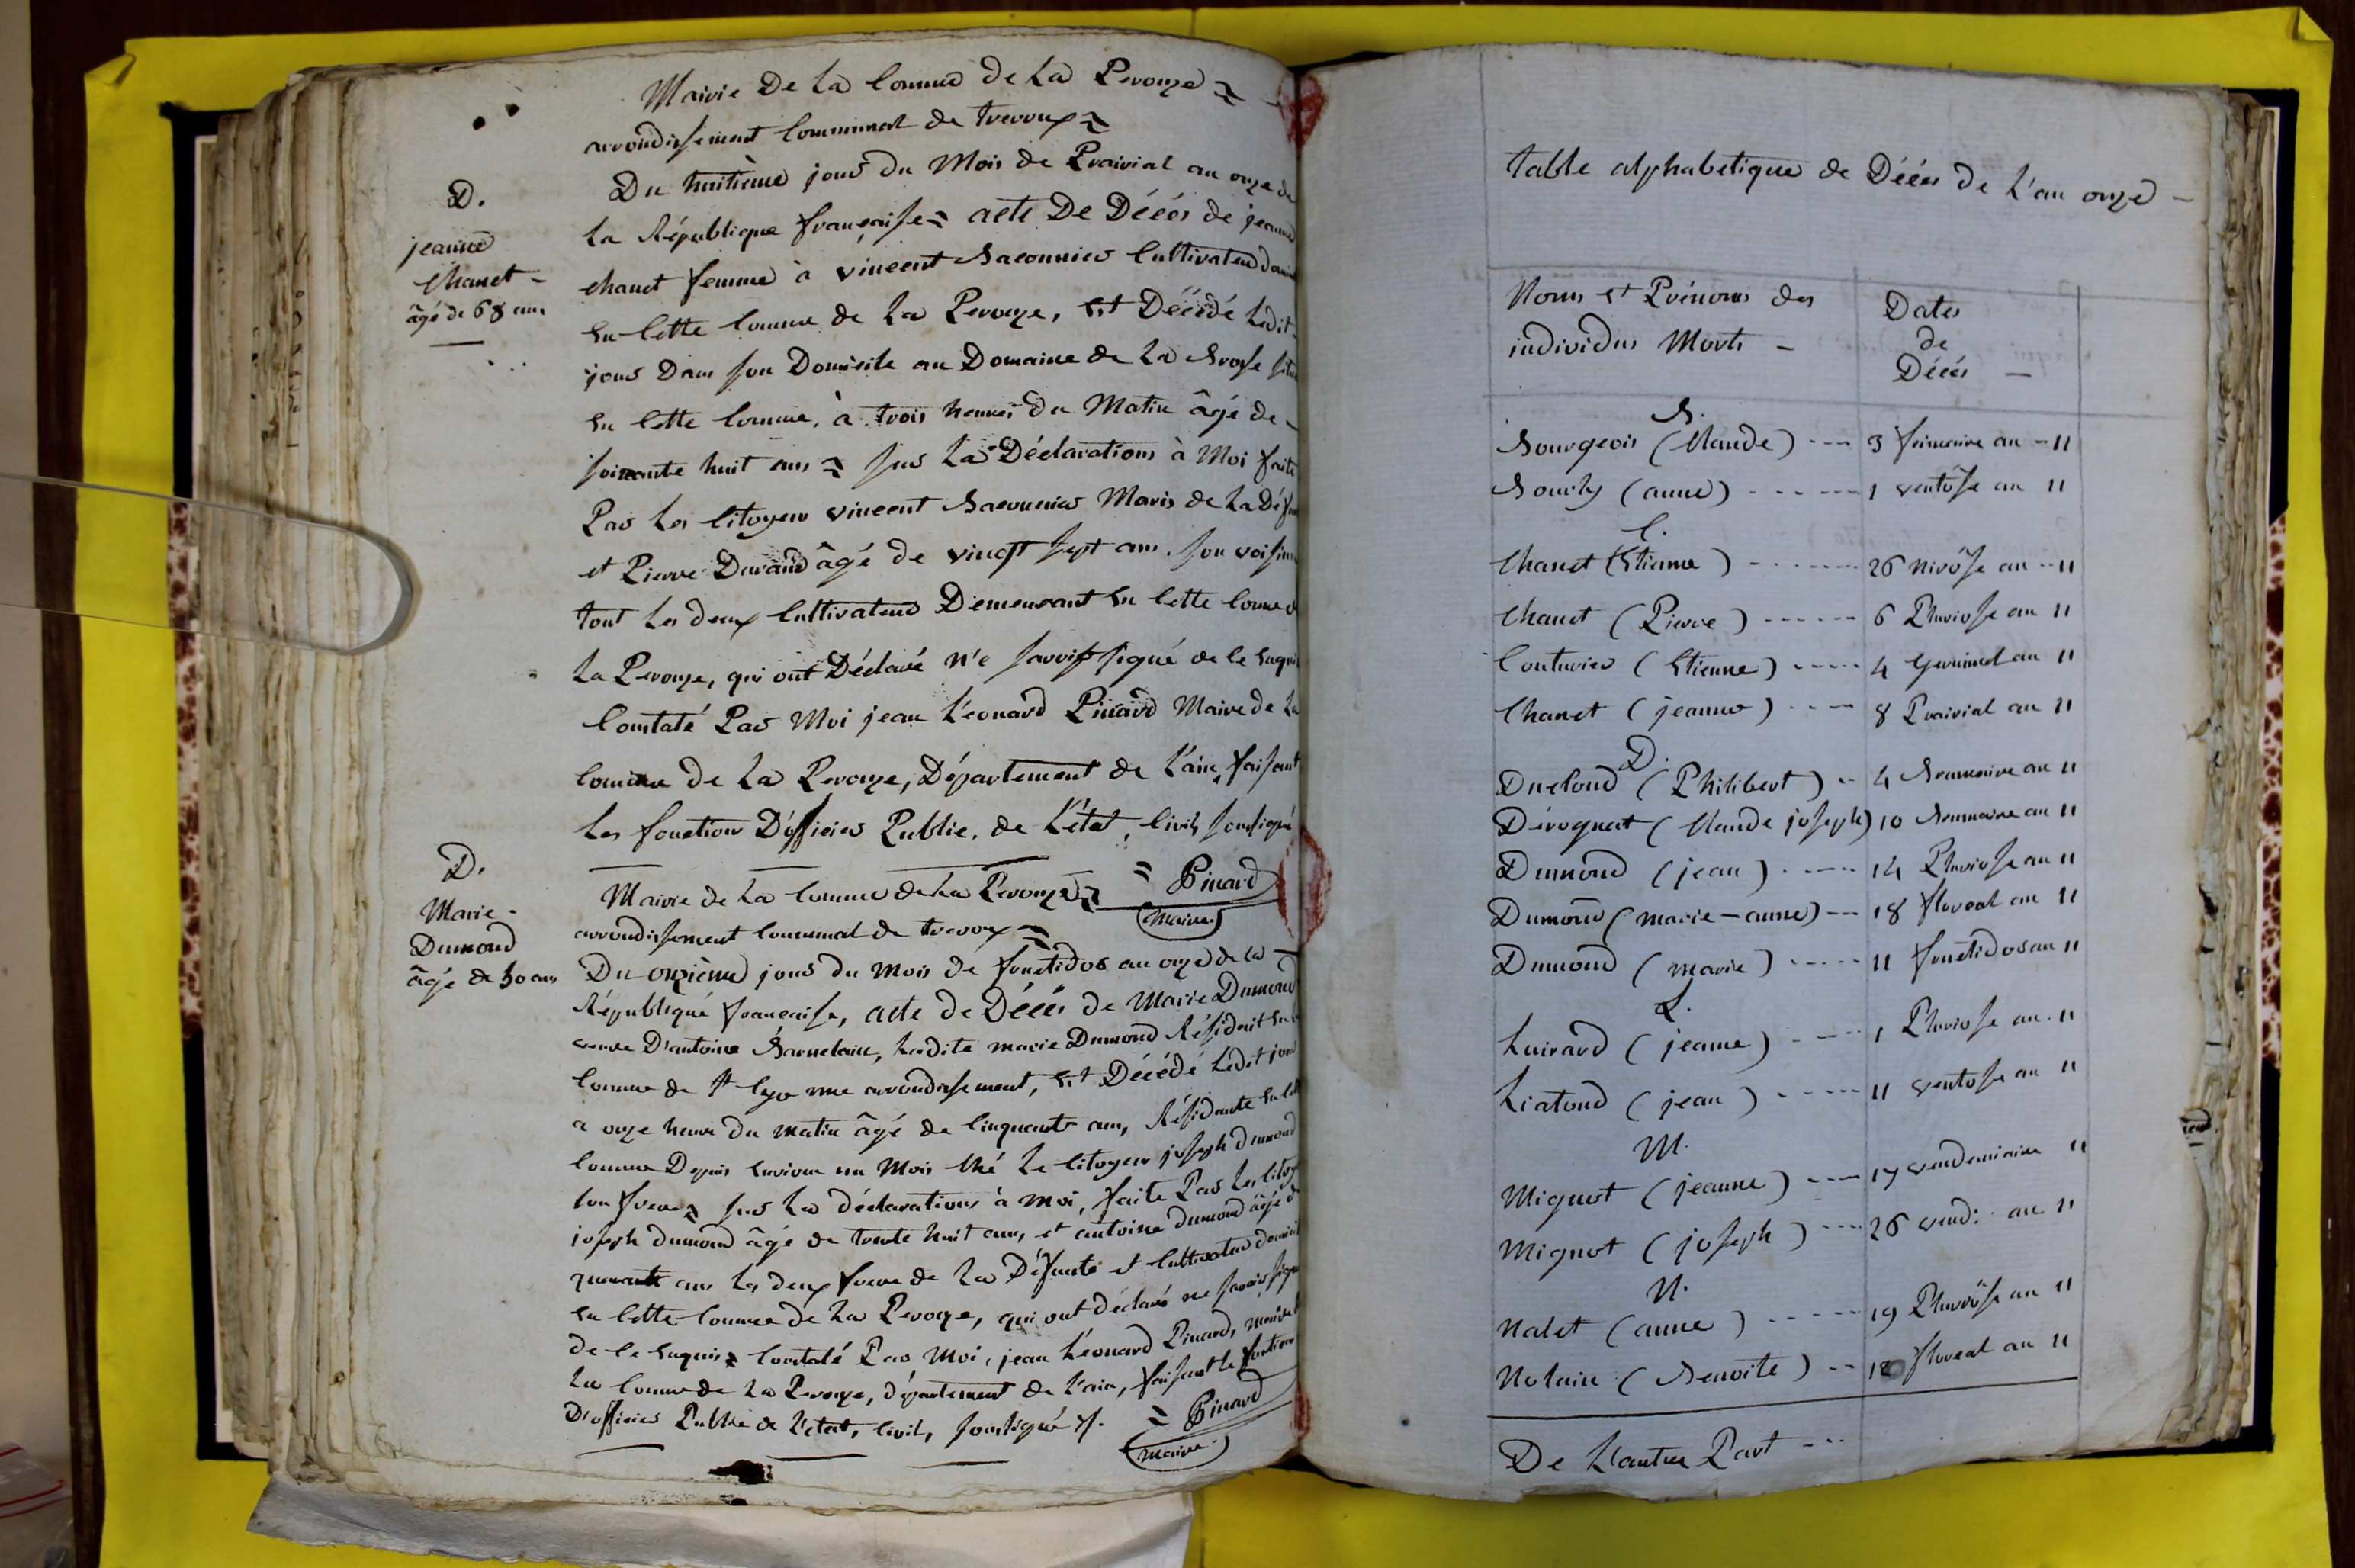 Mairie De La Comune de La Perouze
arrondissement Communal de trevoux
D.
jeanne
Chanet
âgé de 68 ans
Du huitième jour du Mois de Prairial an onze de
La République française acte De Décés de jeanne
chanet femme à vincent Baconnier Cultivateur
En Cette Comune de La Perouze, Est Décédé Ledit
jour Dans son Domicile au Domaine de La Brosse
En Cette Comune, à trois heures du Matin âgé de
soixante huit ans sur La Déclarations à Moi faite
Par Les Citoyen vincent Baconnier Maris de La
et Pierre Durand âgé de vingt sept ans. son voisin
tout Les deux Cultivateur Demeurant En Cette Comune
La Perouze, qui ont Déclaré n'e savoir signé de Ce Enquis
Constaté Par Moi jean Léonard Pinard Maire de La
Comune de La Perouze, Département de L'ain, faisant
Les fonction D'officier Public, de L'état, Civil, soussigné
Pinard
Maire
D.
Marie
Dumond
âgé de 50 ans
Mairie de La Comune de La Perouze
arrondissement Communal de trevoux
Du onzième jour du Mois de fructidor an onze de La
République française, acte de Décés de Marie Dumond
veuve D'antoine, Ladite marie Dumond Résidait
Comune de St arrondissement, Est Décédé Ledit jour
a onze heure du matin âgé de Cinquante ans, Résidante
Comune Depuis Environ un Mois Ché Le Citoyen joseph dumond
son frere sur La déclarations à moi, faite Par Les
joseph dumond âgé de trente huit ans, et antoine dumond âgé de
quarante ans Les deux frere de La Défunte et Cultivateur
En Cette Comune de La Perouze, qui ont déclaré ne savoir signé
de Ce Enquis Constaté Par Moi, jean Léonard Pinard, maire
La Comune de La Perouze, département de L'ain, faisant Les fonctions
D'officier Public de L'etat, Civil, soussigné
Pinard
Maire
table alphabetique de Décés de L'an onze
Noms et Prénoms des individus Morts
Dates de Décés
B.
Bourgeois (Claude) 3 frimaire an 11
Bouchy (anne) 1 ventôse an 11
C.
Chanet (Etienne) 26 Nivôse an 11
Chanet (Pierre) 6 Pluviose an 11
Couturier (Etienne) 4 Germinal an 11
Chanet (jeanne) 8 Prairial an 11
D.
Ducloud (Philibert) 4 Brumaire an 11
Dérognat (Claude joseph) 10 Brumaire an 11
Dumond (jean) 14 Pluviose an 11
Dumond (marie-anne) 18 floreal an 11
Dumond (marie) 11 fructidor an 11
L.
Luirard (jeanne) 1 Pluviose an 11
Liatoud (jean) 11 ventose an 11
M.
Mignot (jeanne) 17 vendemiaire 11
Mignot (joseph) 26 vend: an 11
N.
Nalet (anne) 19 Pluviôse an 11
Nolain (Benoite) floreal an 11
De L'autre Part